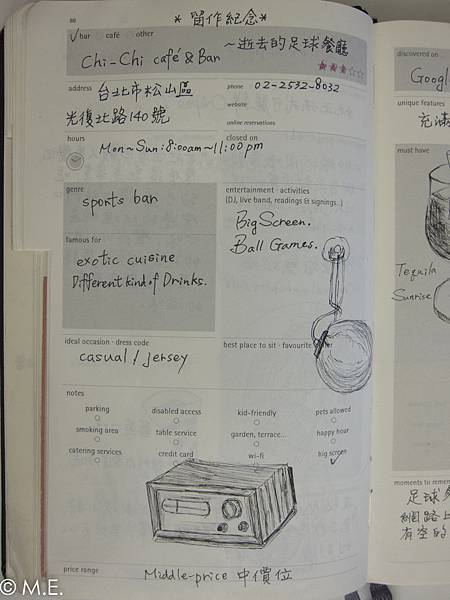 88
*留作紀念*
✓bar café other
~逝去的足球餐廳
Chi-Chi café & Bar
address 台北市松山區
光復北路140號
phone 02-2532-8032
website
online reservations
hours
Mon~Sun:8:00am~11:00pm
closed on
genre
sports bar
entertainment · activities
(DJ, live band, readings & signings...)
Big Screen.
Ball Games.
famous for
exotic cuisine
Different kind of Drinks.
ideal occasion · dress code
casual / jersey
best place to sit · favourite
notes
parking disabled access kid-friendly pets allowed
smoking area table service garden, terrace... happy hour
catering services credit card wi-fi big screen
price range
Middle-price 中價位
discovered on ...
Googl
unique features
充滿
must have
Tequila
Sunrise
moments to remem
足球
網路上
有空的
© M.E.